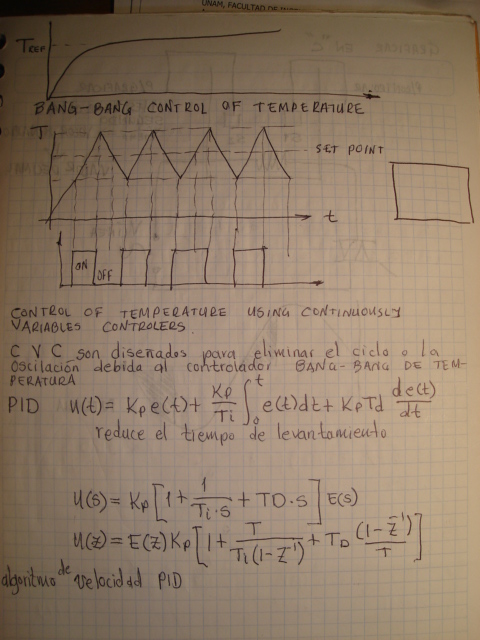 UNAM, FACULTAD DE
TREF
BANG-BANG CONTROL OF TEMPERATURE
T
SET POINT
t
ON
OFF
CONTROL OF TEMPERATURE USING CONTINUOUSLY
VARIABLES CONTROLERS.
C V C son diseñados para eliminar el ciclo o la
oscilación debida al controlador BANG-BANG DE TEM-
PERATURA
PID u(t) = Kp e(t) + Kp/Ti ∫₀ᵗ e(t)dt + KpTd de(t)/dt
reduce el tiempo de levantamiento
U(s) = Kp[1 + 1/Ti·s + TD·s] E(s)
U(z) = E(z)Kp[1 + T/Ti(1-Z⁻¹) + TD (1-Z⁻¹)/T]
algoritmo de velocidad PID